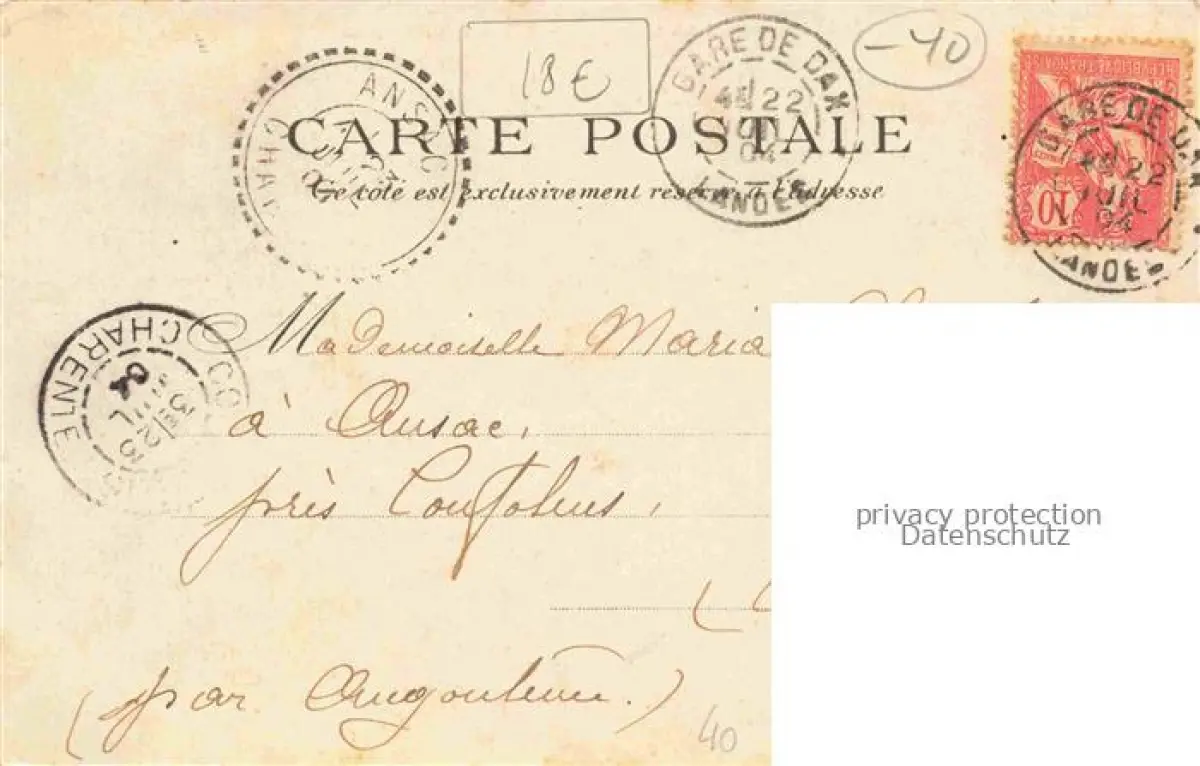 18€
-40
GARE DE DAX
4E 22
JUIL
04
LANDES
GARE DE DAX
4E 22
JUIL
04
LANDES
REPUBLIQUE FRANÇAISE
10
ANSAC
CHA
JUIL
04
CARTE POSTALE
Ce côté est exclusivement réservé à l'adresse
CHARENTE
CO
3E 23
JUIL
04
Mademoiselle Maria
à Ansac,
près Confolens,
(
(par Angoulême.)
40
privacy protection
Datenschutz